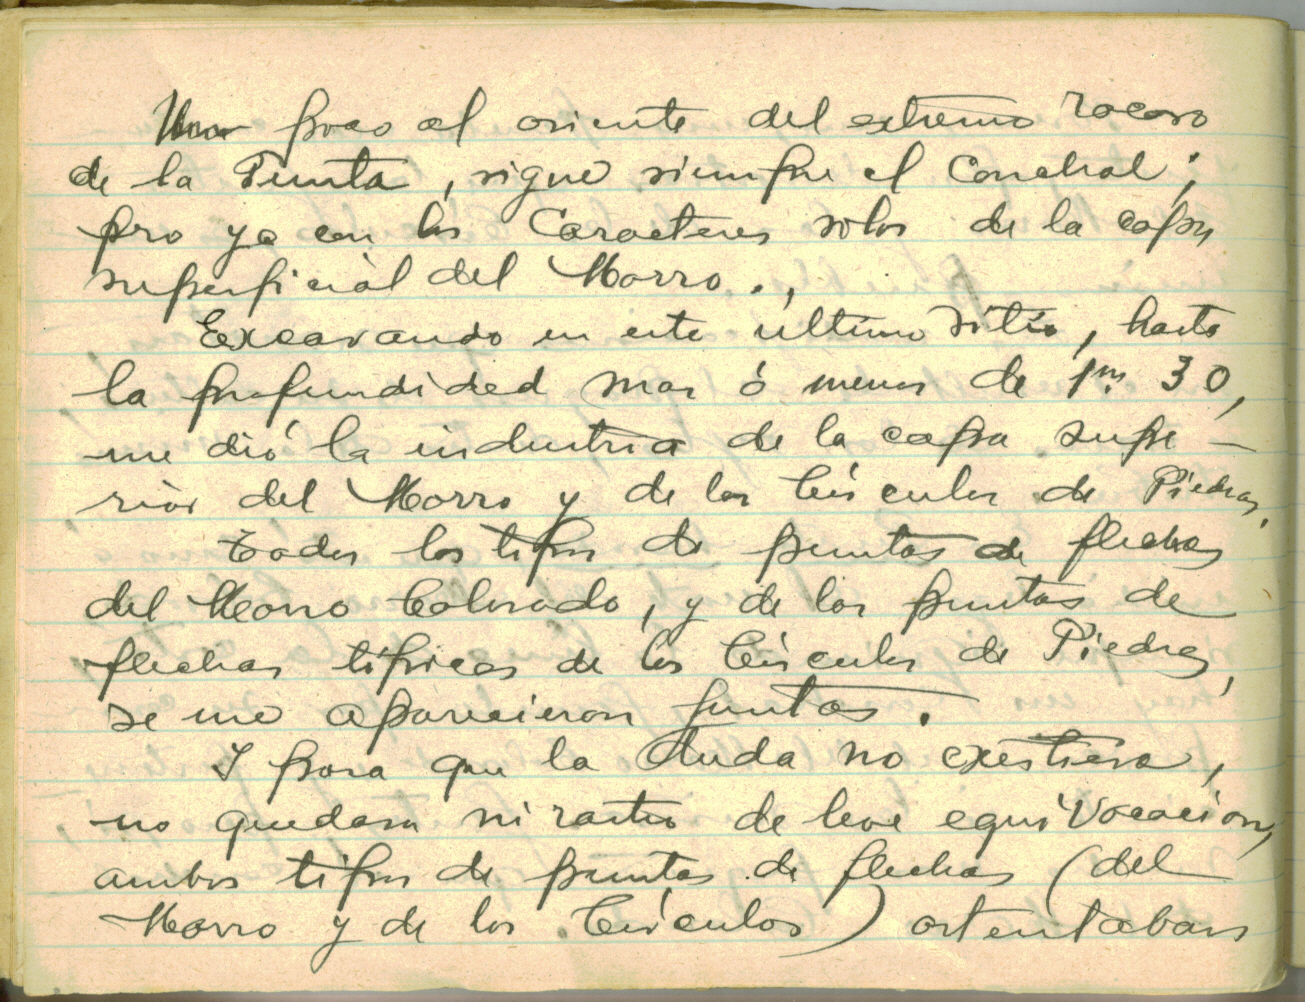 Un poco al oriente del extremo rocoso
de la Punta, sigue siempre el Conchal;
pero ya con los Caracteres solos de la capa
superficial del Morro.,
Excavando en este último Sitio, hasta
la profundidad mas ó menos de 1m 30,
me dió la industria de la capa supe-
rior del Morro y de los Círculos de Piedras.
Todos los tipos de puntas de flechas
del Morro Colorado, y de las puntas de
flechas típicas de los Círculos de Piedras,
se me aparecieron juntas.
I para que la duda no existiera,
no quedara ni rastro de leve equivocación,
ambos tipos de puntas de flechas (del
Morro y de los Círculos) ostentaban